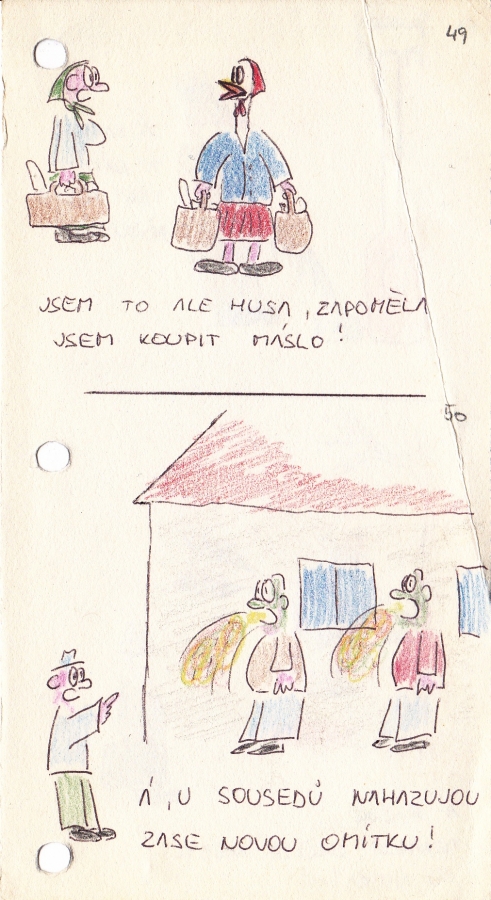 49
JSEM TO ALE HUSA, ZAPOMĚLA
JSEM KOUPIT MÁSLO!
50
Á, U SOUSEDŮ NAHAZUJOU
ZASE NOVOU OMÍTKU!